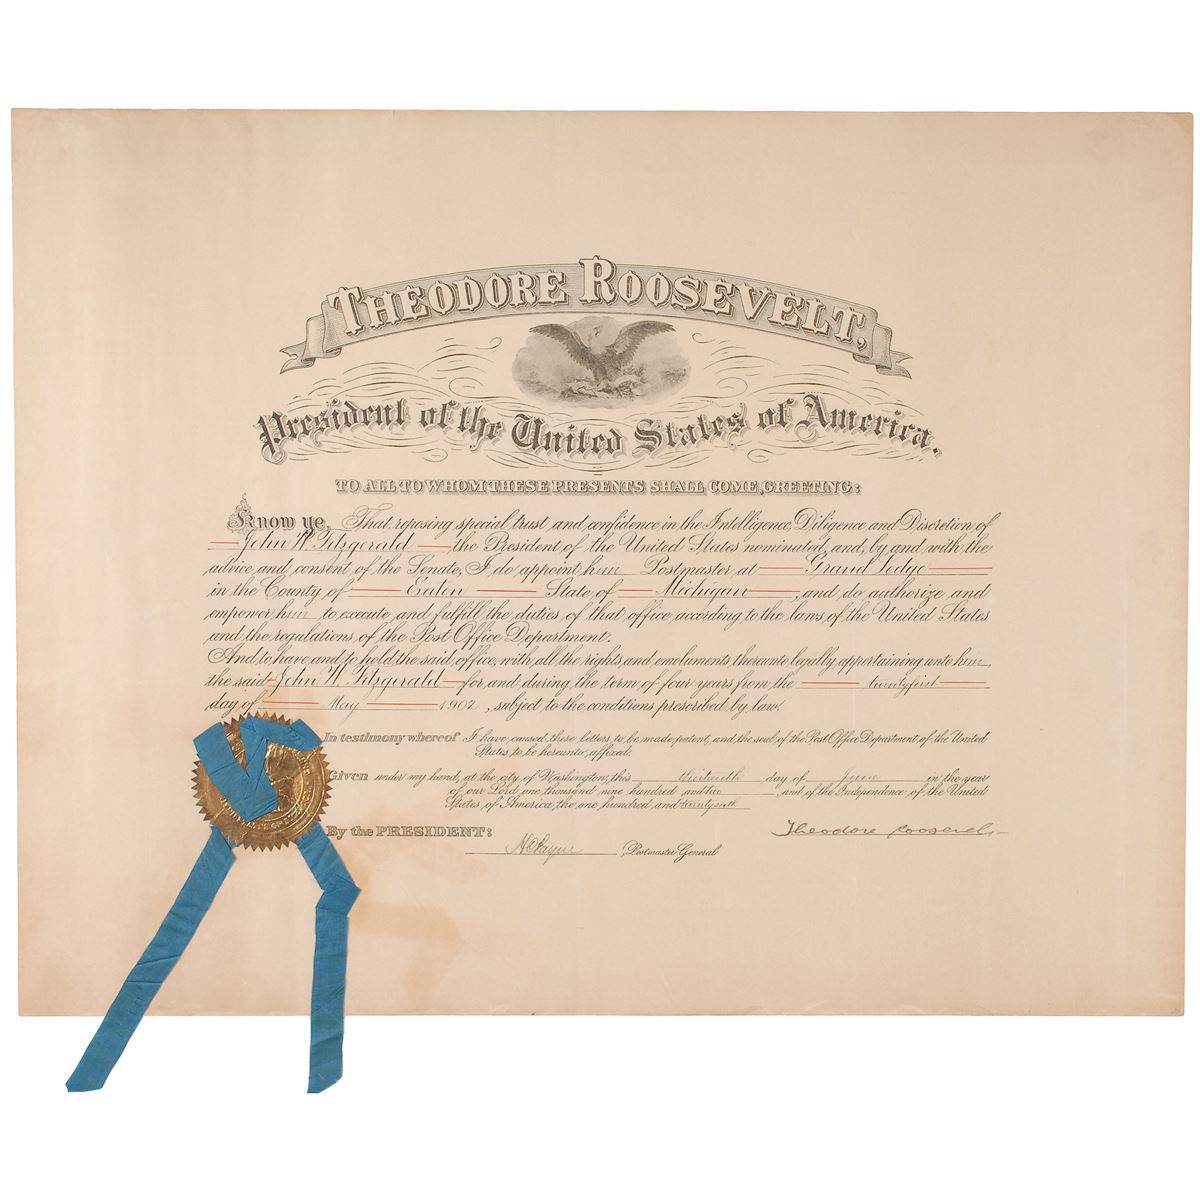 THEODORE ROOSEVELT,
President of the United States of America.
TO ALL TO WHOM THESE PRESENTS SHALL COME, GREETING:
Know ye, That, reposing special trust and confidence in the Intelligence, Diligence and Discretion of
John W. Fitzgerald the President of the United States nominated, and, by and with the
advice and consent of the Senate, I do appoint him Postmaster at Grand Ledge
in the County of Eaton State of Michigan, and do authorize and
empower him to execute and fulfill the duties of that office according to the laws of the United States
and the regulations of the Post Office Department.
And to have and to hold the said office, with all the rights and emoluments thereunto legally appertaining unto him,
the said John W. Fitzgerald for and during the term of four years from the twentyfirst
day of May 1902, subject to the conditions prescribed by law.
In testimony whereof I have caused these letters to be made patent, and the seal of the Post Office Department of the United
States to be hereunto affixed.
Given under my hand, at the city of Washington, this day of June in the year
of our Lord one thousand nine hundred and two, and of the Independence of the United
States of America, the one hundred and twentysixth
By the PRESIDENT: Theodore Roosevelt
H C Payne, Postmaster General